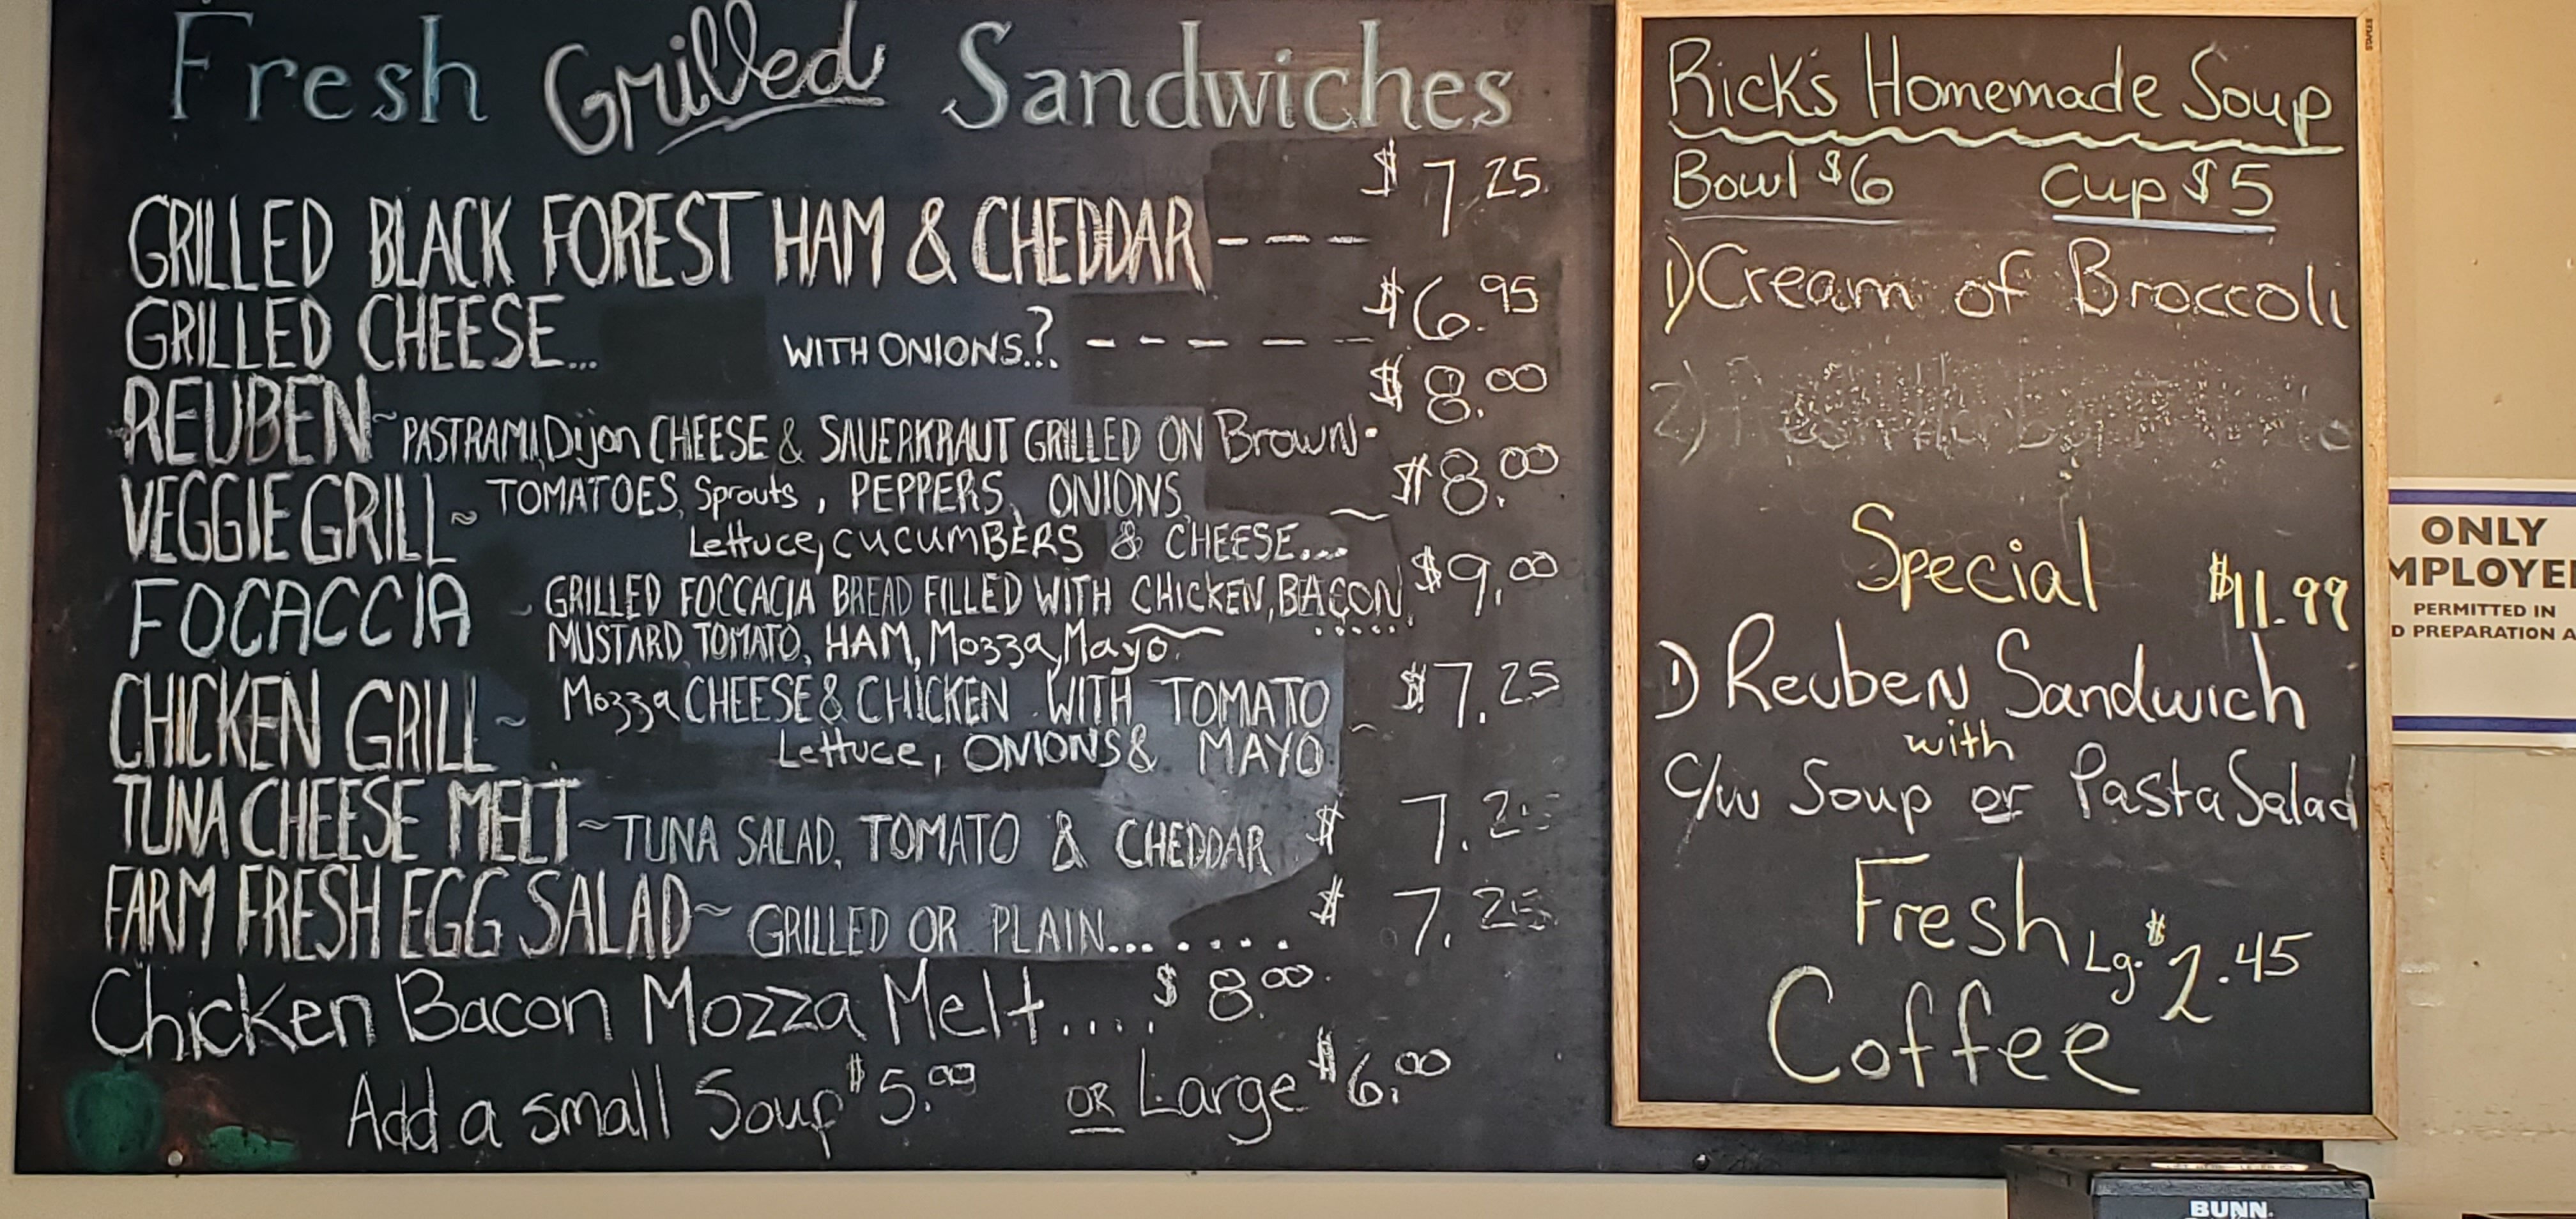 Fresh Grilled Sandwiches
GRILLED BLACK FOREST HAM & CHEDDAR ---- $7.25
GRILLED CHEESE... WITH ONIONS.? ----- $6.95
REUBEN~ PASTRAMI, Dijon CHEESE & SAUERKRAUT GRILLED ON Brown- $8.00
VEGGIE GRILL~ TOMATOES, Sprouts, PEPPERS, ONIONS, ~ $8.00
Lettuce, CUCUMBERS & CHEESE...
FOCACCIA - GRILLED FOCCACIA BREAD FILLED WITH CHICKEN, BACON, $9.00
MUSTARD, TOMATO, HAM, Mozza, Mayo.
CHICKEN GRILL~ Mozza CHEESE & CHICKEN WITH TOMATO ~ $7.25
Lettuce, ONIONS & MAYO
TUNA CHEESE MELT~ TUNA SALAD, TOMATO & CHEDDAR $7.25
FARM FRESH EGG SALAD~ GRILLED OR PLAIN........ $7.25
Chicken Bacon Mozza Melt.... $8.00
Add a small Soup $5.00 OR Large $6.00
Rick's Homemade Soup
Bowl $6 Cup $5
1) Cream of Broccoli
2)
Special $11.99
1) Reuben Sandwich
with
C/w Soup or Pasta Salad
Fresh Lg. $2.45
Coffee
ONLY
MPLOYE
PERMITTED IN
D PREPARATION A
BUNN.